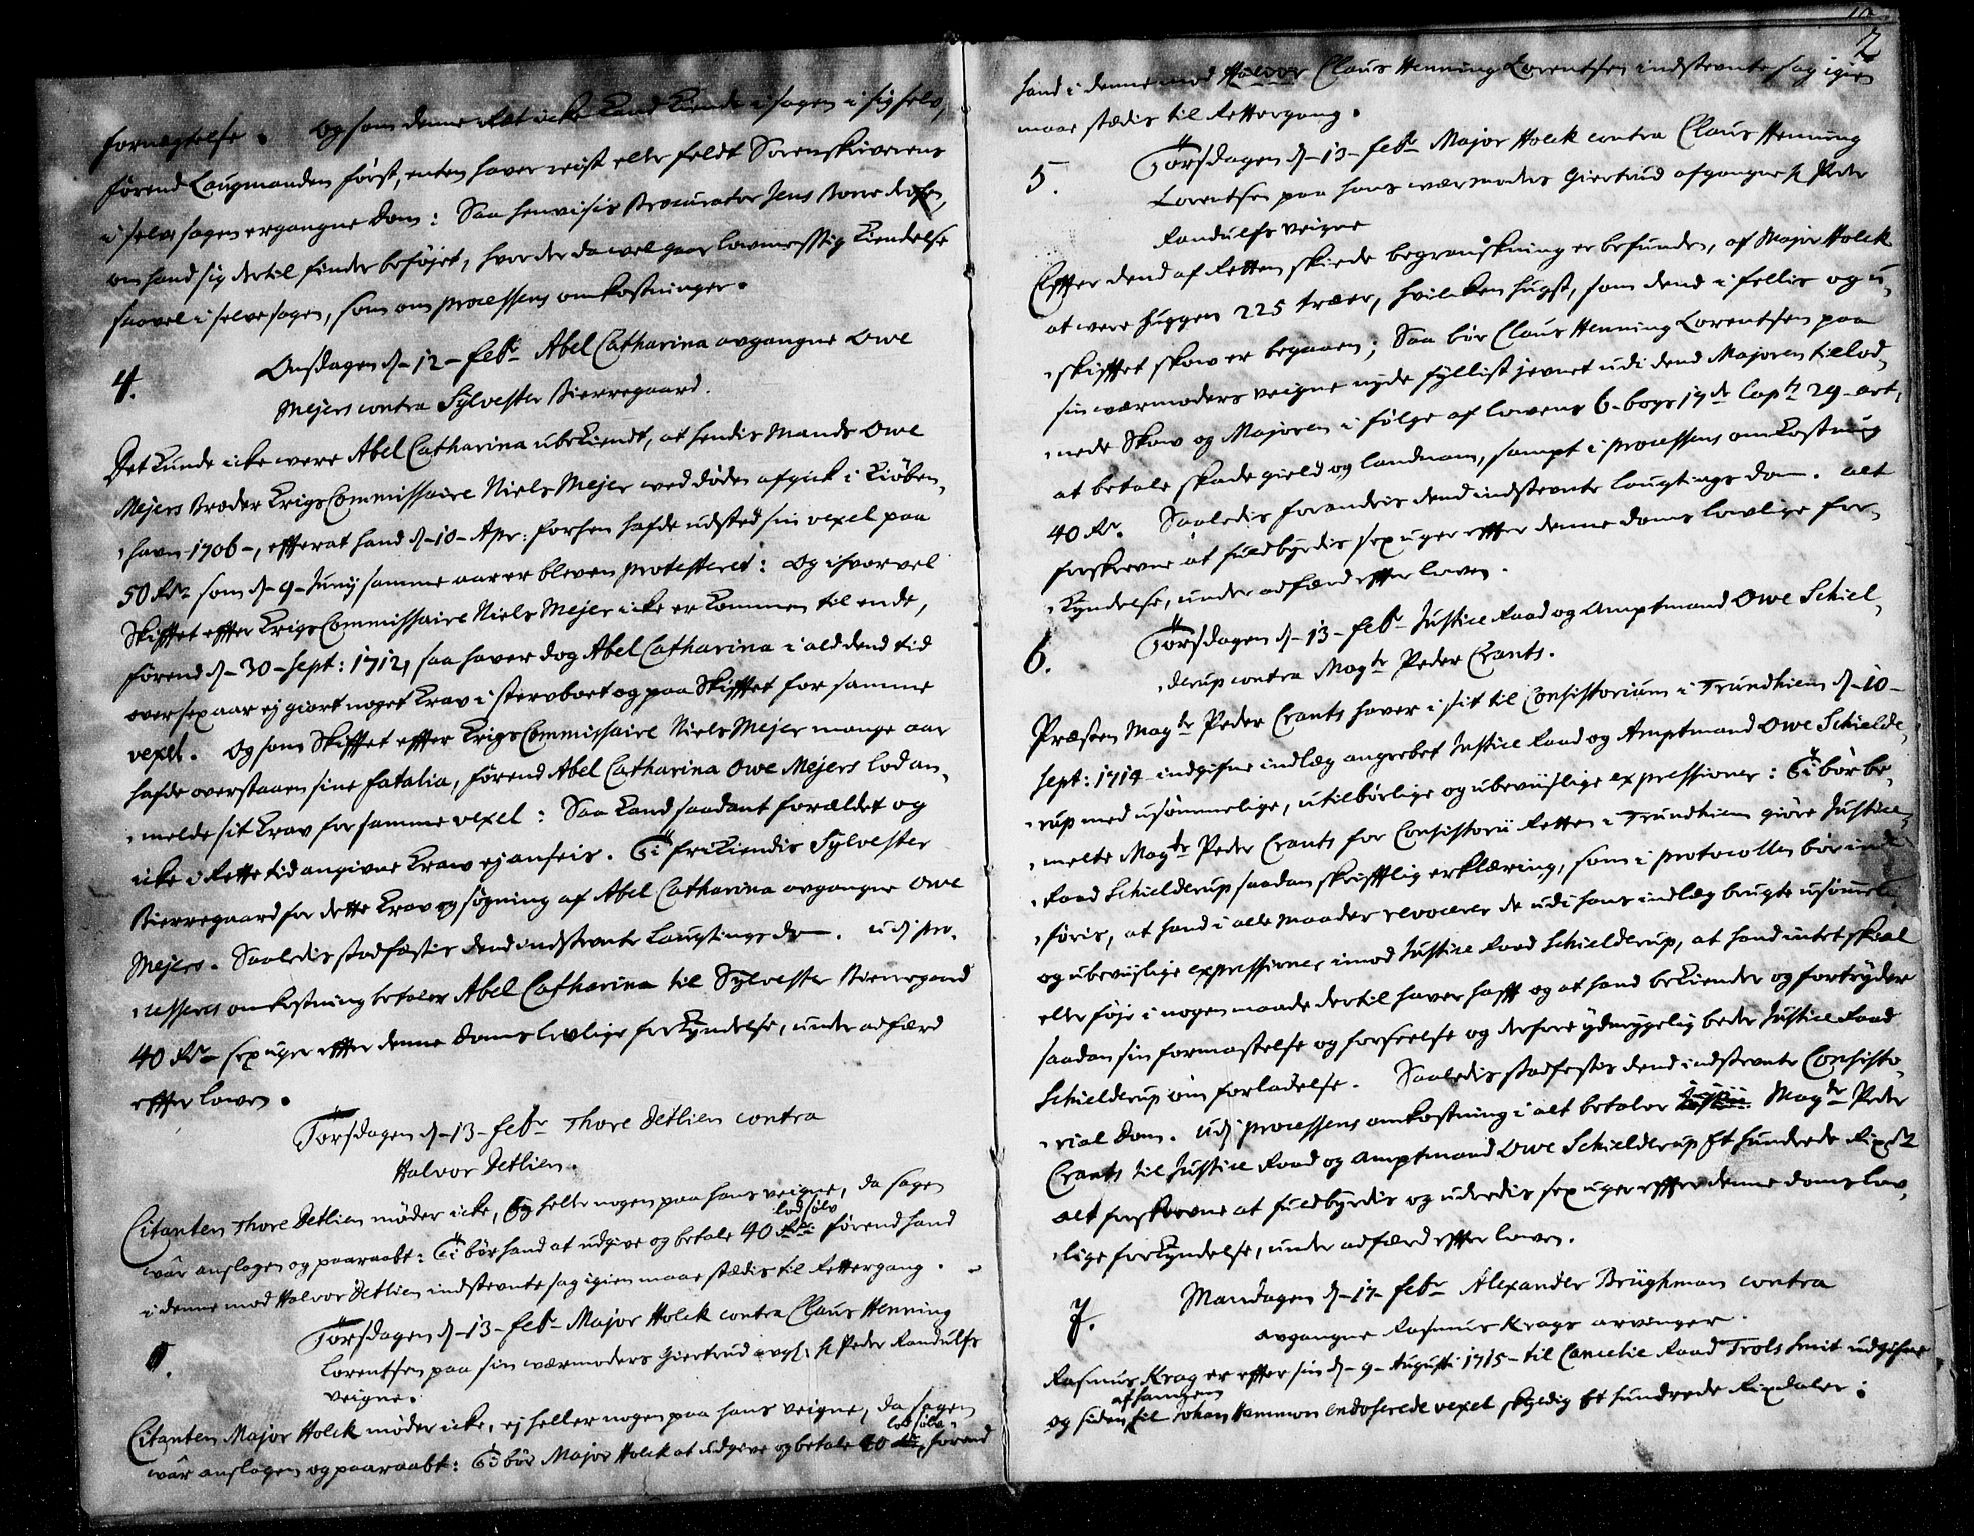 fornegtelse. Og som denne Ret icke kand kiende i sagen i sig selv,
førend Laugmanden først, enten haver reist eller feldt Sorenskriverens
i selve sagen ergangne dom: Saa henvisis Procurator Jens
om hand sig dertil finder beføjet, hvor der da vel gaar lovmessig Kiendelse
saavel i selve sagen, som om processens omkostninger.
4.
Onsdagen d-12-febr Abel Catharina avgangne Owe
Mejers contra Sylvester Bierregaard.
Det kunde icke were Abel Catharina ubekiendt, at hendis Mands Owe
Mejers Broder KrigsCommissaire Niels Mejer ved døden afgick i Kiøben,
,havn 1706-, efter at hand d-10-Apr: forhen hafde udsted sin vexel paa
50 Rdr som d-9-Junij samme aar er bleven protesteret: Og ihvorvel
Skifftet effter KrigsCommissaire Niels Mejer icke er kommen til ende,
førend d-30-sept: 1712, saa haver dog Abel Catharina i ald dend tid
over sex aar ej giort noget krav i stervboet og paa Skifftet for samme
vexel. Og som Skifftet effter KrigsCommissaire Niels Mejer mange aar
hafde overstaaen sine fatalia, førend Abel Catharina Owe Mejers lod an,
,melde sit krav for samme vexel: Saa kand saadant forældet og
icke i Rette tid angivne krav ej ansees. Ti frikiendis Sylvester
Bierregaard for dette krav og søgning af Abel Catharina avgangne Owe
Mejers. Saaledis stadfæstis dend indstevnte Laugtings dom. udj pro,
,cessens omkostning betaler Abel Catharina til Sylvester Bierregaard
40 Rdr sex uger effter denne Doms lovlige forkyndelse, under adfærd
effter loven.
Torsdagen d-13-febr Thore Detlien contra
Halvor Detlien.
Citanten Thore Detlien møder icke, Ej heller nogen paa hans veigne, da sagen
lod sølv
vār anslagen og paaraabt: Ti bør hand at udgive og betale 40 Rdr førend hand
i denne mod Halvor Detlien indstevnte sag igien maae stædis til Rettergang.
Torsdagen d-13-febr Major Holck contra Claus Henning
Lorentsen paa sin værmoders Giertrud avg: Hr Peder Randulfs
veigne.
Citanten Major Holck møder icke, ej heller nogen paa hans veigne, da sagen
lod sølv
vār anslagen og paaraabt: Ti bør Major Holck at udgive og betale 40 Rdr, førend
2
hand i denne mod Halvor Claus Henning Lorentsen indstevnte sag igien
maae stædis til Rettergang.
5.
Torsdagen d-13-febr Major Holck contra Claus Henning
Lorentsen paa hans værmoders Giertrud afgangne Hr Peder
Randulfs veigne
Effter dend af Retten skiede begranskning er befunden, af Major Holck
at were huggen 225 træer, hvilcken hugst, som dend i fellis og u,
,skifftet skov er begaaen; Saa bør Claus Henning Lorentsen paa
sin værmoders veigne nyde fyllist jevnet udi dend Majoren tillod,
,nede Skov og Majoren i følge af lovens 6-bogs 17de Capt 29-art,
at betale skadegield og landnam, sampt i processens omkostning
40 Rdr. Saaledis forandris dend indstevnte laugtings dom. alt
forskrevne at fuldbyrdis sex uger effter denne doms lovlige for,
,kyndelse, under adfærd effter loven.
6.
Torsdagen d-13-febr Justice Raad og Amptmand Owe Schiel,
,derup contra Magtr Peder Crants.
Præsten Magtr Peder Crants haver i sit til Consistorium i Trundhiem d-10-
sept: 1714 indgifne indlæg angrebet Justice Raad og Amptmand Owe Schielde,
,rup med usømmelige, utilbørlige og ubeviislige expressioner: Ti bør be,
,melte Magtr Peder Crants for Consistorii Retten i Trundhiem giøre Justice
,Raad Schielderup saadan skrifftlig erklæring, som i protocollen bør ind,
,føris, at hand i alle maader revocerer de udi hans indlæg brugte usømmelige
og ubeviislige expressioner imod Justice Raad Schielderup, at hand intet skiæl
eller føje i nogen maade dertil haver hafft og at hand bekiender og fortryder
saadan sin formastelse og forseelse og derfore ydmygelig beder Justice Raad
Schielderup om forladelse. Saaledis stadfestes dend indstevnte Consisto,
,rial dom. udj processens omkostning i alt betaler Magtr Peder
Crants til Justice Raad og Amptmand Owe Schielderup Et hundrede Rixdr
alt forskrevne at fuldbyrdis og uderedis sex uger effter denne doms lov,
,lige forkyndelse, under adfærd effter loven.
7.
Mandagen d-17-febr Alexander Brüghman contra
avgangne Rasmus Krags arvinger.
Rasmus Krag er effter sin d-9-Augusti 1715-til Cancelie Raad Trols Smit udgifne
af hannem
og siden til Johan Hammon endoserede vexel skyldig Et hundrede Rixdaler: